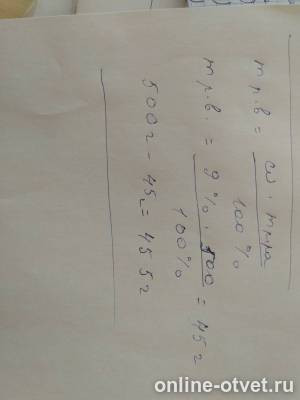 m р.в = ω · m р-ра
100%
m р.в. = 9% · 500 = 45 г
100%
500 г - 45 г = 455 г
online-otvet.ru